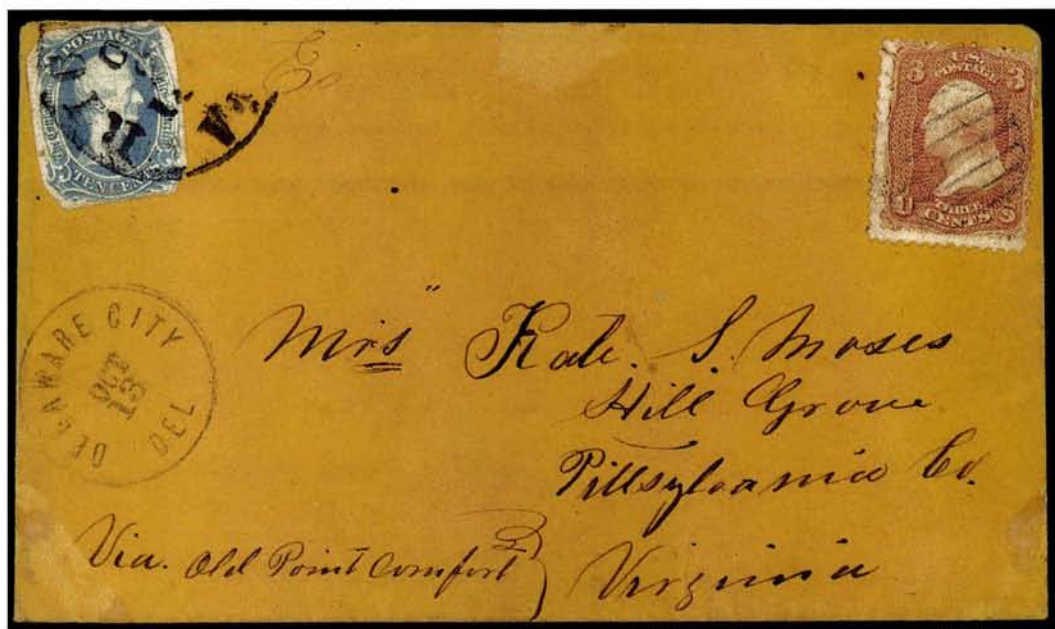 POSTAGE
TEN CENTS
Va
U.S.
POSTAGE
3 3
THREE
U CENTS S
DELAWARE CITY DEL
OCT
13
Mrs" Kate. S. Moses
Hill Grove
Pittsylvania Co.
Virginia
Via. Old Point Comfort